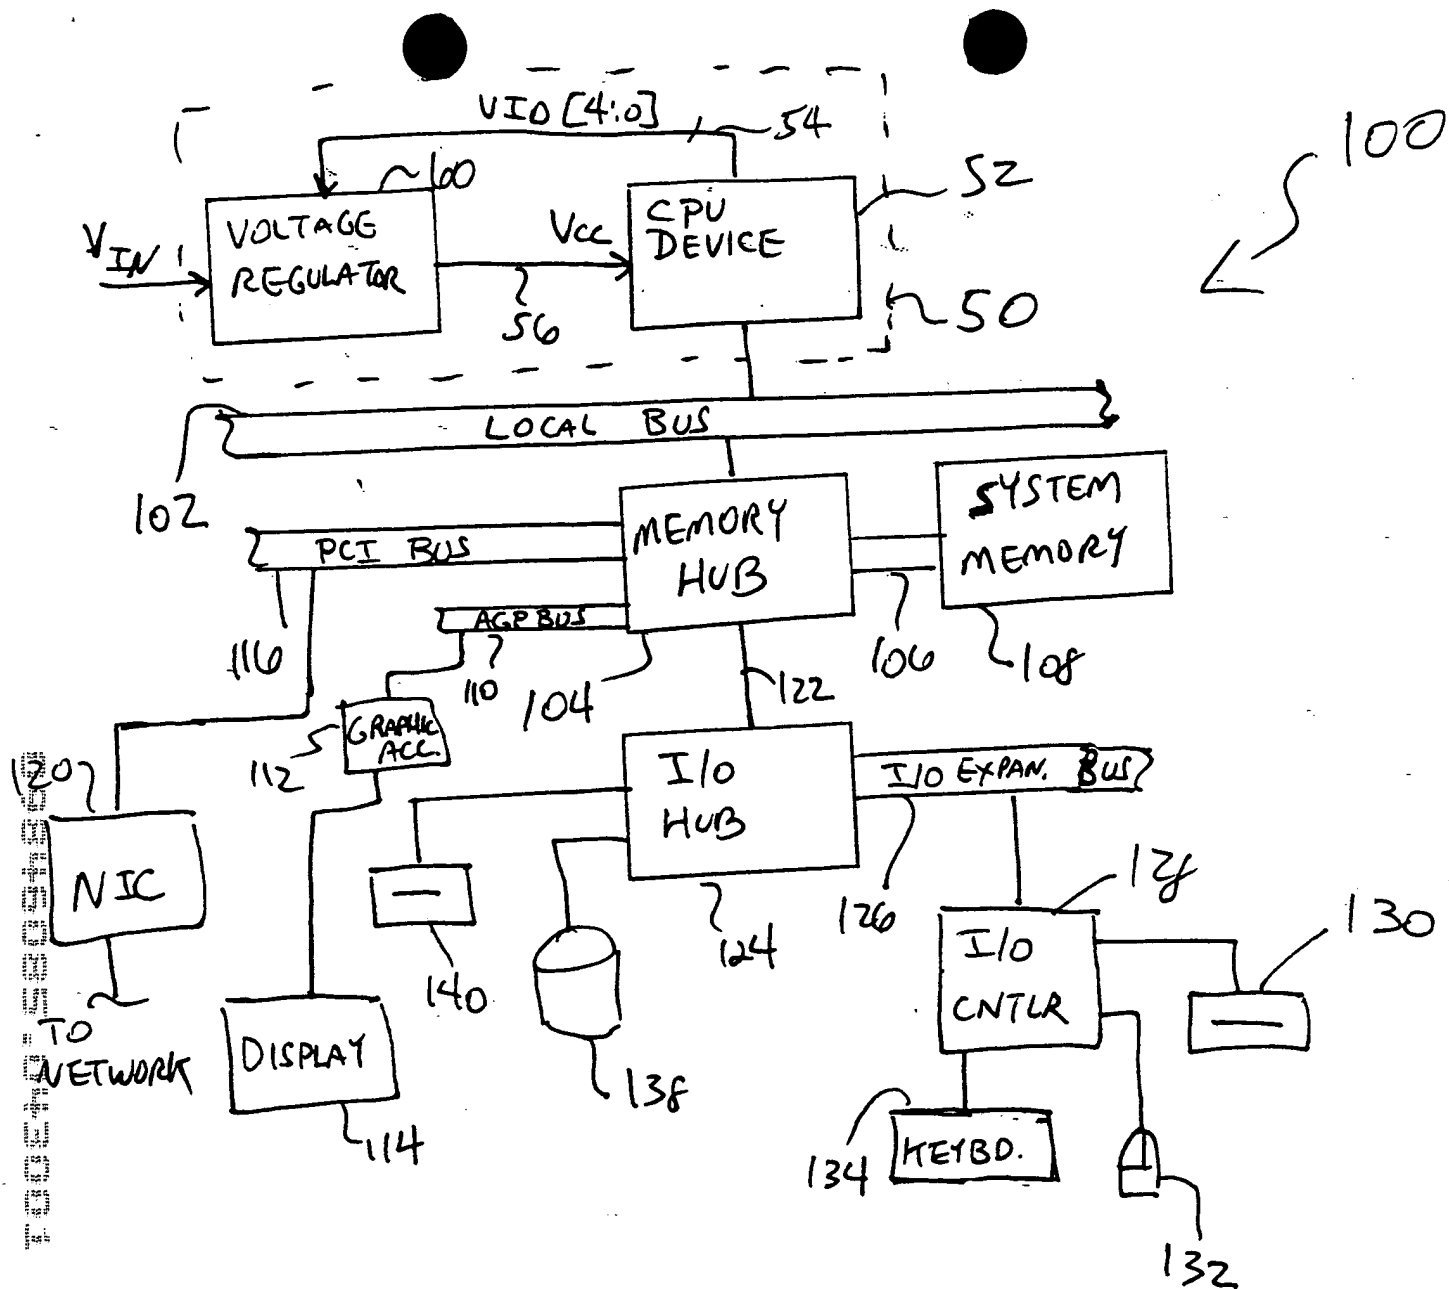 VID [4:0]
54
100
60
52
VOLTAGE
REGULATOR
VIN
Vcc
CPU
DEVICE
56
50
LOCAL BUS
102
MEMORY
HUB
SYSTEM
MEMORY
PCI BUS
AGP BUS
116
110
104
106
108
122
GRAPHIC
ACC.
112
120
I/O
HUB
I/O EXPAN. BUS
NIC
140
124
126
128
130
I/O
CNTLR
TO
NETWORK
DISPLAY
114
138
134
KEYBD.
132